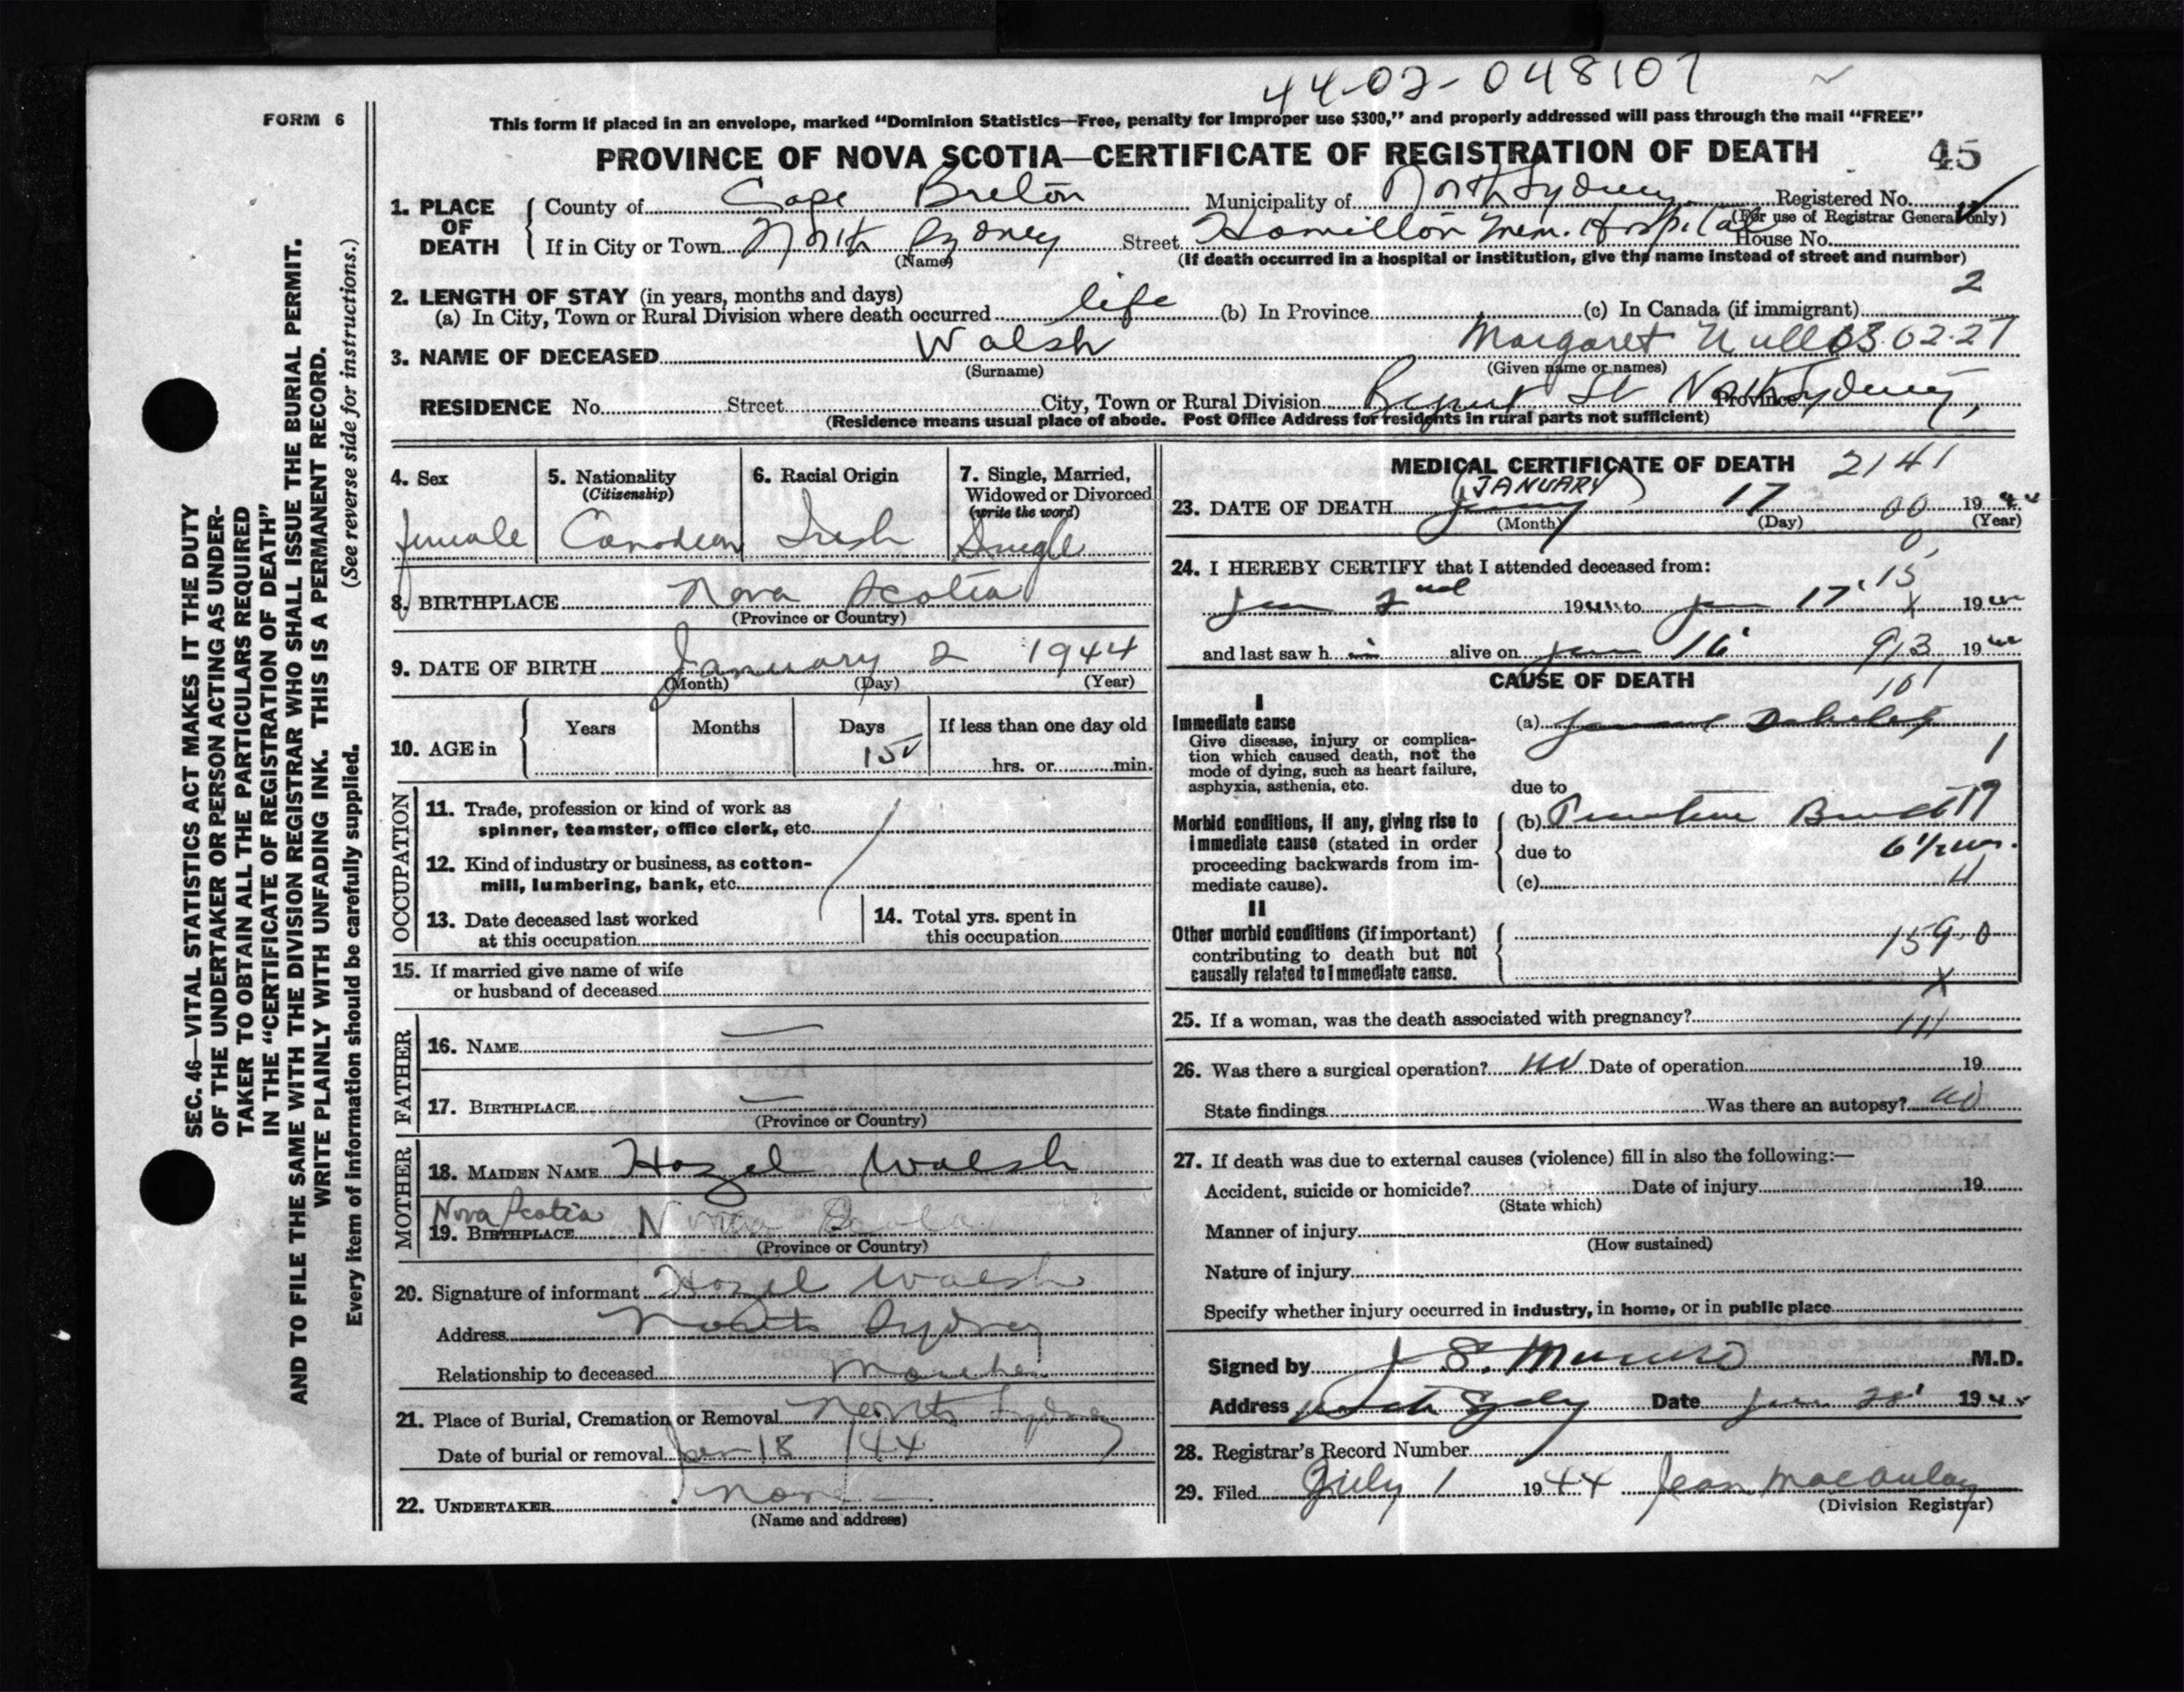 44-02-048107
FORM 6
This form if placed in an envelope, marked “Dominion Statistics—Free, penalty for improper use $300,” and properly addressed will pass through the mail “FREE”
PROVINCE OF NOVA SCOTIA—CERTIFICATE OF REGISTRATION OF DEATH 45
1. PLACE OF DEATH
County of Cape Breton Municipality of North Sydney Registered No.
(For use of Registrar General only)
If in City or Town North Sydney Street Hamilton Mem. Hospital House No.
(Name) (If death occurred in a hospital or institution, give the name instead of street and number)
2. LENGTH OF STAY (in years, months and days) 2
(a) In City, Town or Rural Division where death occurred life (b) In Province (c) In Canada (if immigrant)
3. NAME OF DECEASED Walsh Margaret 03.02.27
(Surname) (Given name or names)
RESIDENCE No. Street City, Town or Rural Division St North Sydney, Province
(Residence means usual place of abode. Post Office Address for residents in rural parts not sufficient)
4. Sex
female
5. Nationality
(Citizenship)
Canadian
6. Racial Origin
Irish
7. Single, Married,
Widowed or Divorced
(write the word)
Single
8. BIRTHPLACE Nova Scotia
(Province or Country)
9. DATE OF BIRTH January 2 1944
(Month) (Day) (Year)
10. AGE in
Years Months Days If less than one day old
15 hrs. or min.
OCCUPATION
11. Trade, profession or kind of work as
spinner, teamster, office clerk, etc.
12. Kind of industry or business, as cotton-
mill, lumbering, bank, etc.
13. Date deceased last worked
at this occupation
14. Total yrs. spent in
this occupation
15. If married give name of wife
or husband of deceased
FATHER
16. NAME —
17. BIRTHPLACE —
(Province or Country)
MOTHER
18. MAIDEN NAME Hazel Walsh
Nova Scotia
19. BIRTHPLACE Nova Scotia
(Province or Country)
20. Signature of informant Hazel Walsh
Address North Sydney
Relationship to deceased Mother
21. Place of Burial, Cremation or Removal North Sydney
Date of burial or removal Jan 18 /44
22. UNDERTAKER None
(Name and address)
MEDICAL CERTIFICATE OF DEATH 2141
(JANUARY)
23. DATE OF DEATH 17 00 1944
(Month) (Day) (Year)
24. I HEREBY CERTIFY that I attended deceased from:
15
Jan 2nd 1944 to Jan 17 1944
and last saw h alive on Jan 16 913 1944
CAUSE OF DEATH
101
I
Immediate cause
Give disease, injury or complica-
tion which caused death, not the
mode of dying, such as heart failure,
asphyxia, asthenia, etc.
(a) Debility
1
due to
Morbid conditions, if any, giving rise to
immediate cause (stated in order
proceeding backwards from im-
mediate cause).
(b) Premature Birth 19
due to 6 1/2 mos.
(c) 4
II
Other morbid conditions (if important)
contributing to death but not
causally related to immediate cause.
159.0
X
25. If a woman, was the death associated with pregnancy?
26. Was there a surgical operation? no Date of operation 19
State findings Was there an autopsy? no
27. If death was due to external causes (violence) fill in also the following:—
Accident, suicide or homicide? Date of injury 19
(State which)
Manner of injury
(How sustained)
Nature of injury
Specify whether injury occurred in industry, in home, or in public place
Signed by J S. Munro M.D.
Address North Sydney Date Jan 28 1944
28. Registrar’s Record Number
29. Filed July 1 1944 Jean MacAulay
(Division Registrar)
SEC. 46—VITAL STATISTICS ACT MAKES IT THE DUTY
OF THE UNDERTAKER OR PERSON ACTING AS UNDER-
TAKER TO OBTAIN ALL THE PARTICULARS REQUIRED
IN THE “CERTIFICATE OF REGISTRATION OF DEATH”
AND TO FILE THE SAME WITH THE DIVISION REGISTRAR WHO SHALL ISSUE THE BURIAL PERMIT.
WRITE PLAINLY WITH UNFADING INK. THIS IS A PERMANENT RECORD.
Every item of information should be carefully supplied. (See reverse side for instructions.)